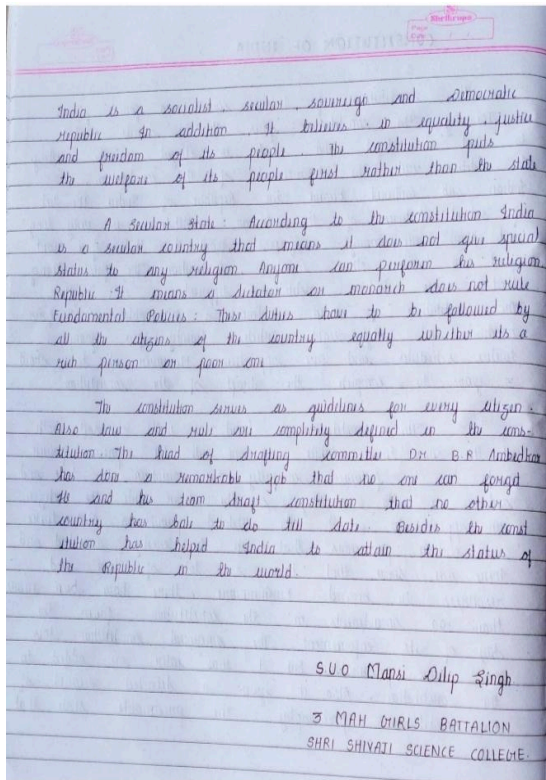 Shrikrupa
Page
Date
India is a socialist, secular, sovereign and Democratic
republic In addition, It believes in equality, justice
and freedom of its people. The constitution puts
the welfare of its people first rather than the state

A Secular State: According to the constitution India
is a secular country that means it does not give special
status to any religion Anyone can perform his religion
Republic: It means a dictator or monarch does not rule
Fundamental Policies: These duties have to be followed by
all the citizens of the country equally whether its a
rich person or poor one

The constitution serves as guidelines for every citizen.
Also law and rule are completely defined in the cons-
titution The head of drafting committee DR B.R Ambedkar
has done a remarkable job that no one can forget
He and his team draft constitution that no other
country has bale to do till date Besides the const
itution has helped India to attain the status of
the Republic in the world.

S.U.O Mansi Dilip Singh
3 MAH GIRLS BATTALION
SHRI SHIVAJI SCIENCE COLLEGE.